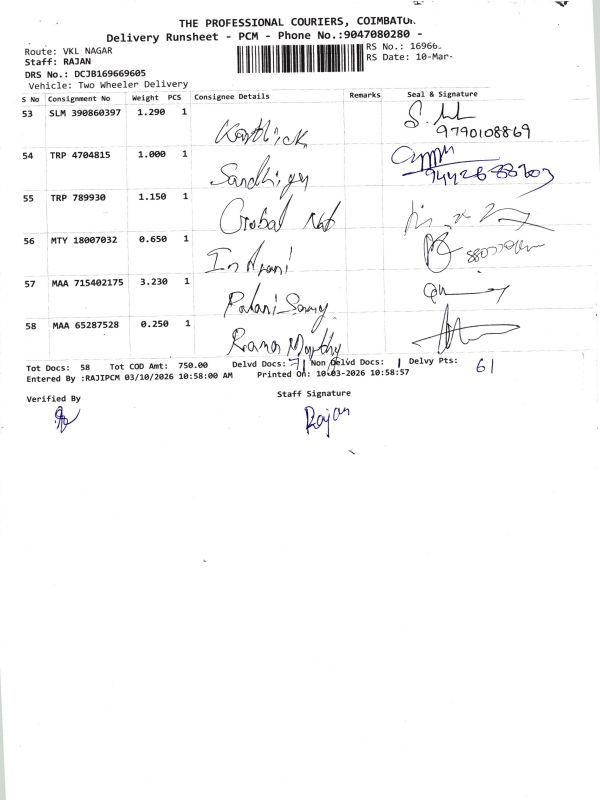 THE PROFESSIONAL COURIERS, COIMBATOR
Delivery Runsheet - PCM - Phone No.:9047080280 -
Route: VKL NAGAR
RS No.: 16966
Staff: RAJAN
RS Date: 10-Mar-
DRS No.: DCJB169669605
Vehicle: Two Wheeler Delivery
S No Consignment No Weight PCS Consignee Details Remarks Seal & Signature
53 SLM 390860397 1.290 1 Karthick
9790108869
54 TRP 4704815 1.000 1 Sandhiya
55 TRP 789930 1.150 1 Global Nat
56 MTY 18007032 0.650 1
57 MAA 715402175 3.230 1 Palani Samy
58 MAA 65287528 0.250 1 Rama Moorthy
Tot Docs: 58 Tot COD Amt: 750.00 Delvd Docs: 71 Non Delvd Docs: 1 Delvy Pts: 61
Entered By :RAJIPCM 03/10/2026 10:58:00 AM Printed On: 10-03-2026 10:58:57
Verified By
Staff Signature
Rajan